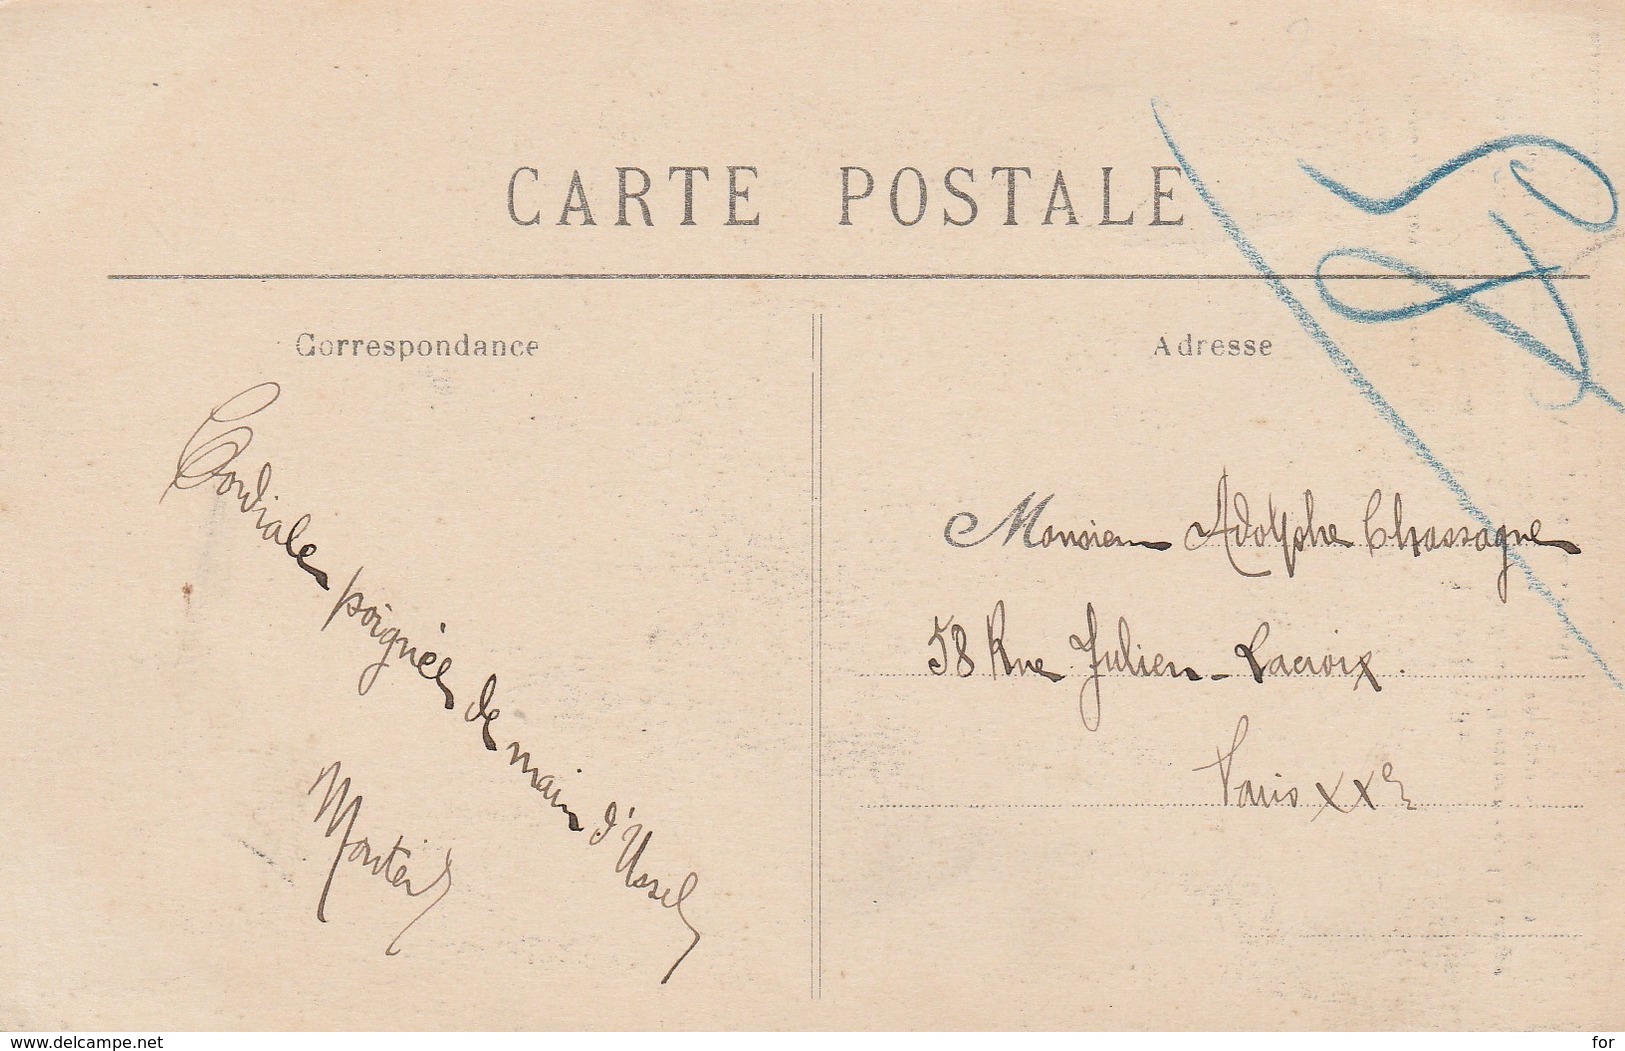 CARTE POSTALE
Correspondance
Adresse
Cordiale poignée de main d'Ussel
Monsieur Adolphe Chassagne
58 Rue Julien-Lacroix.
Paris XXe
www.delcampe.net
for